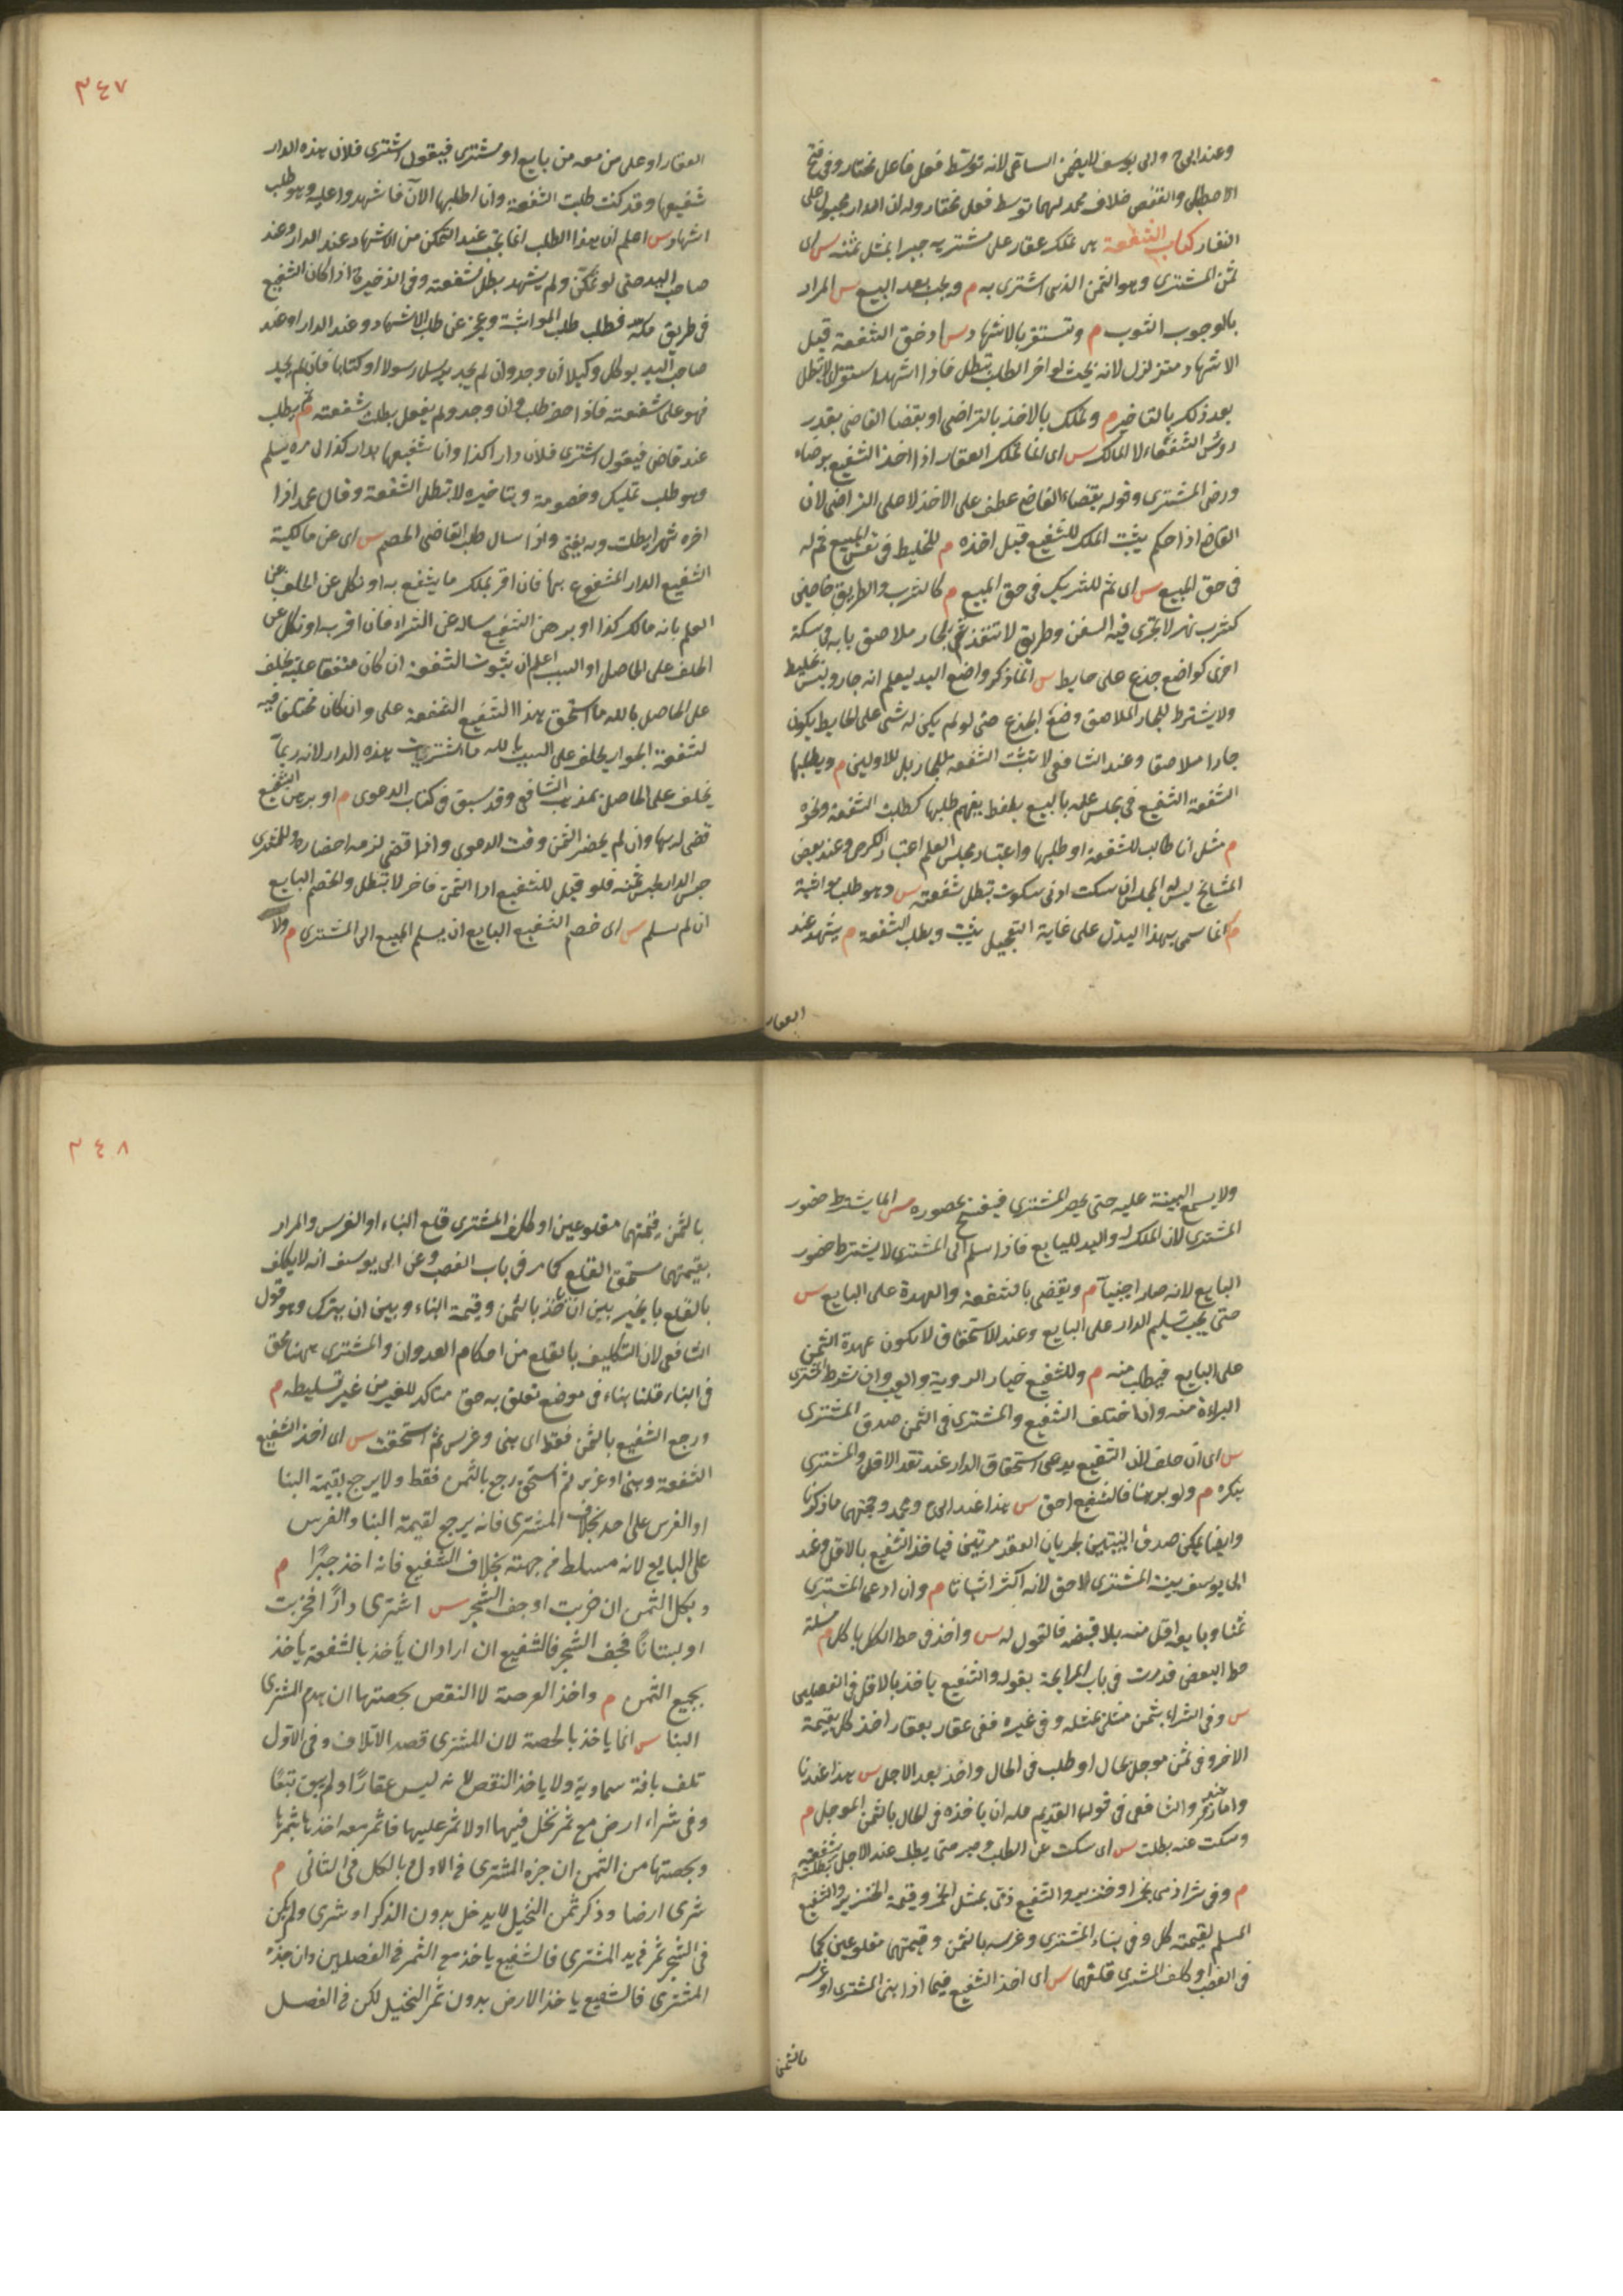 وعند ابي ح وابي يوسف لا يضمن الساعي لانه توسط فعل فاعل مختار وفي فتح
الاصطبل والقفص خلاف محمد لهما توسط فعل مختار وله ان الدار مجبول على
النفار كتاب الشفعة هي تملك عقار على مشتريه جبرا بمثل ثمنه س اي
ثمن المشتري وهو الثمن الذي اشترى به م ويجب بعد البيع س المراد
بالوجوب الثبوت م وتستقر بالاشهاد س اذ حق الشفعة قبل
الاشهاد متزلزل لانه بحيث لو اخر الطلب تبطل فاذا اشهد استقر لا تبطل
بعد ذلك بالتاخير م وتملك بالاخذ بالتراضي او بقضا القاضي بقدر
رؤس الشفعاء لا الملك س اي انما تملك العقار اذا اخذ الشفيع برضاه
ورضى المشتري وقوله بقضاء القاضي عطف على الاخذ لا على التراضي لان
القاضي اذا حكم يثبت الملك للشفيع قبل اخذه م للخليط في نفس المبيع ثم له
في حق المبيع س اي ثم للشريك في حق المبيع م كالشرب والطريق خاصين
كشرب نهر لا تجري فيه السفن وطريق لا تنفذ ثم لجار ملاصق بابه في سكة
اخرى كواضع جذع على حايط س انما ذكر واضع اليد ليعلم انه جار وليس بخليط
ولا يشترط للجار الملاصق وضع الجذع حتى لو لم يكن له شي على الحايط يكون
جارا ملاصقا وعند الشافعي لا تثبت الشفعة للجار بل للاولين م ويطلبها
الشفعة الشفيع في مجلس علمه بالبيع بلفظ يفهم طلبها كطلبت الشفعة ونحوه
م مثل انا طالب للشفعة او طلبها واعتبار مجلس العلم اعتبار الكرخي وعند بعض
المشايخ ليس له المجلس ان سكت ادنى سكوت تبطل شفعته س وهو طلب مواثبة
م انما سمي بهذا ليدل على غاية التعجيل يثب ويطلب الشفعة م يشهد عند
العقار
٣٤٧
العقار او على من معه من بايع او مشتري فيقول اشترى فلان هذه الدار
شفيعها وقد كنت طلبت الشفعة وانا اطلبها الآن فاشهدوا عليه وهو طلب
اشهاد س اعلم ان هذا الطلب انما يجب عند التمكن من الاشهاد عند الدار وعند
صاحب اليد حتى لو تمكن ولم يشهد بطل شفعته وفي الذخيرة اذا كان الشفيع
في طريق مكة فطلب طلب المواثبة وعجز عن طلب الاشهاد وعند الدار او عند
صاحب اليد يوكل وكيلا ان وجد وان لم يجد يرسل رسولا او كتابا فان لم يجد
فهو على شفعته فاذا حضر طلب وان وجد ولم يفعل بطلت شفعته م ثم يطلب
عند قاض فيقول اشترى فلان دار كذا وانا شفيعها بدار كذا لي مره يسلم
وهو طلب تمليك وخصومة وبتاخيره لا تبطل الشفعة وقال محمد اذا
اخره شهرا بطلت وبه يفتى واذا سال طلب القاضي الخصم س اي عن مالكية
الشفيع الدار المشفوع بها فان اقر بملك ما يشفع به او نكل عن الحلف على
العلم بانه مالك كذا او برهن الشفيع ساله عن الشراء فان اقر به او نكل عن
الحلف على الحاصل او السبب اعلم ان ثبوت الشفعة ان كان متفقا عليه يحلف
على الحاصل بالله ما استحق هذا الشفيع الشفعة على وان كان مختلفا فيه
كشفعة الجوار يحلف على السبب بالله ما اشتريت هذه الدار لانه ربما
يحلف على الحاصل بمذهب الشافعي وقد سبق في كتاب الدعوى م او برهن الشفيع
قضى له بها وان لم يحضر الثمن وقت الدعوى واذا قضى لزمه احضاره وللمشتري
حبس الدار لقبض ثمنه فلو قيل للشفيع ادا الثمن فاخر لا تبطل والخصم البايع
ان لم يسلم س اي خصم الشفيع البايع ان يسلم المبيع الى المشتري م ولا
ولا يسمع البينة عليه حتى يحضر المشتري فيفسخ بحضوره س انما يشترط حضور
المشتري لان الملك له واليد للبايع فاذا سلم الى المشتري لا يشترط حضور
البايع لانه صار اجنبيا م ويقضي بالشفعة والعهدة على البايع س
حتى يجب تسليم الدار على البايع وعند الاستحقاق لا يكون عهدة الثمن
على البايع فيطلب منه م وللشفيع خيار الروية والعيب وان شرط المشتري
البراة منه وان اختلف الشفيع والمشتري في الثمن صدق المشتري
س اي ان حلف لان الشفيع يدعي استحقاق الدار عند نقد الاقل والمشتري
ينكره م ولو برهنا فالشفيع احق س هذا عند ابي ح ومحمد وحجتهما ما ذكرنا
وايضا يمكن صدق البينتين بجريان العقد مرتين فياخذ الشفيع بالاقل وعند
ابي يوسف بينة المشتري احق لانه اكثر اثباتا م وان ادعى المشتري
ثمنا وبايعه اقل منه بلا قبضه فالقول له س واخذ في حط الكل بالكل م مسئلة
حط البعض قد مرت في باب المرابحة بقوله والشفيع ياخذ بالاقل في الفصلين
س وفي الشراء بثمن مثلي بمثله وفي غيره ففي عقار بعقار اخذ كل بقيمة
الاخر وفي ثمن موجل بحال او طلب في الحال واخذ بعد الاجل س هذا عندنا
واما عند زفر والشافعي في قوله القديم فله ان ياخذه في الحال بالثمن الموجل م
وسكت عنه بطلت س اي سكت عن الطلب وصبر حتى يطلب عند الاجل بطلت شفعته
م وفي شرا ذمي بخمر او خنزير والشفيع ذمي بمثل الخمر وقيمة الخنزير والشفيع
المسلم بقيمة كل وفي بناء المشتري وغرسه بالثمن وقيمتهما مقلوعين كما
في الغصب او كلف المشتري قلعهما س اي اخذ الشفيع فيما اذا بنى المشتري او غرسه
بالثمن
٣٤٨
بالثمن وقيمتهما مقلوعين او كلف المشتري قلع البناء او الغرس والمراد
بقيمتهما مستحق القلع كما مر في باب الغصب وعن ابي يوسف انه لا يكلف
بالقلع بل يخير بين ان ياخذ بالثمن وقيمة البناء وبين ان يترك وهو قول
الشافعي لان التكليف بالقلع من احكام العدوان والمشتري ههنا محق
في البناء قلنا بناء في موضع تعلق به حق متاكد للغير من غير تسليطه م
ورجع الشفيع بالثمن فقط اي بنى وغرس ثم استحقت س اي اخذ الشفيع
الشفعة وبنى او غرس ثم استحق رجع بالثمن فقط ولا يرجع بقيمة البنا
او الغرس على احد بخلاف المشتري فانه يرجع لقيمة البنا والغرس
على البايع لانه مسلط من جهته بخلاف الشفيع فانه اخذ جبرًا م
وبكل الثمن ان خربت او جف الشجر س اشترى دارًا فخربت
او بستانًا فجف الشجر فالشفيع ان اراد ان يأخذ بالشفعة يأخذ
بجميع الثمن م واخذ العرصة لا النقص بحصتها ان هدم المشتري
البنا س انما ياخذ بالحصة لان المشتري قصد الاتلاف وفي الاول
تلف بافة سماوية ولا ياخذ النقص لانه ليس عقارًا ولم يبق تبعًا
وفي شراء ارض مع ثمر نخل فيها او لا ثمر عليها فاثمر معه اخذها بثمرها
وبحصتها من الثمن ان جزه المشتري في الاول وبالكل في الثاني م
شرى ارضا وذكر ثمن النخيل لا يدخل بدون الذكر او شرى ولم يكن
في الشجر ثمر في يد المشتري فالشفيع ياخذ مع الثمر في الفصلين وان جذه
المشتري فالشفيع ياخذ الارض بدون ثمر النخيل لكن في الفصل